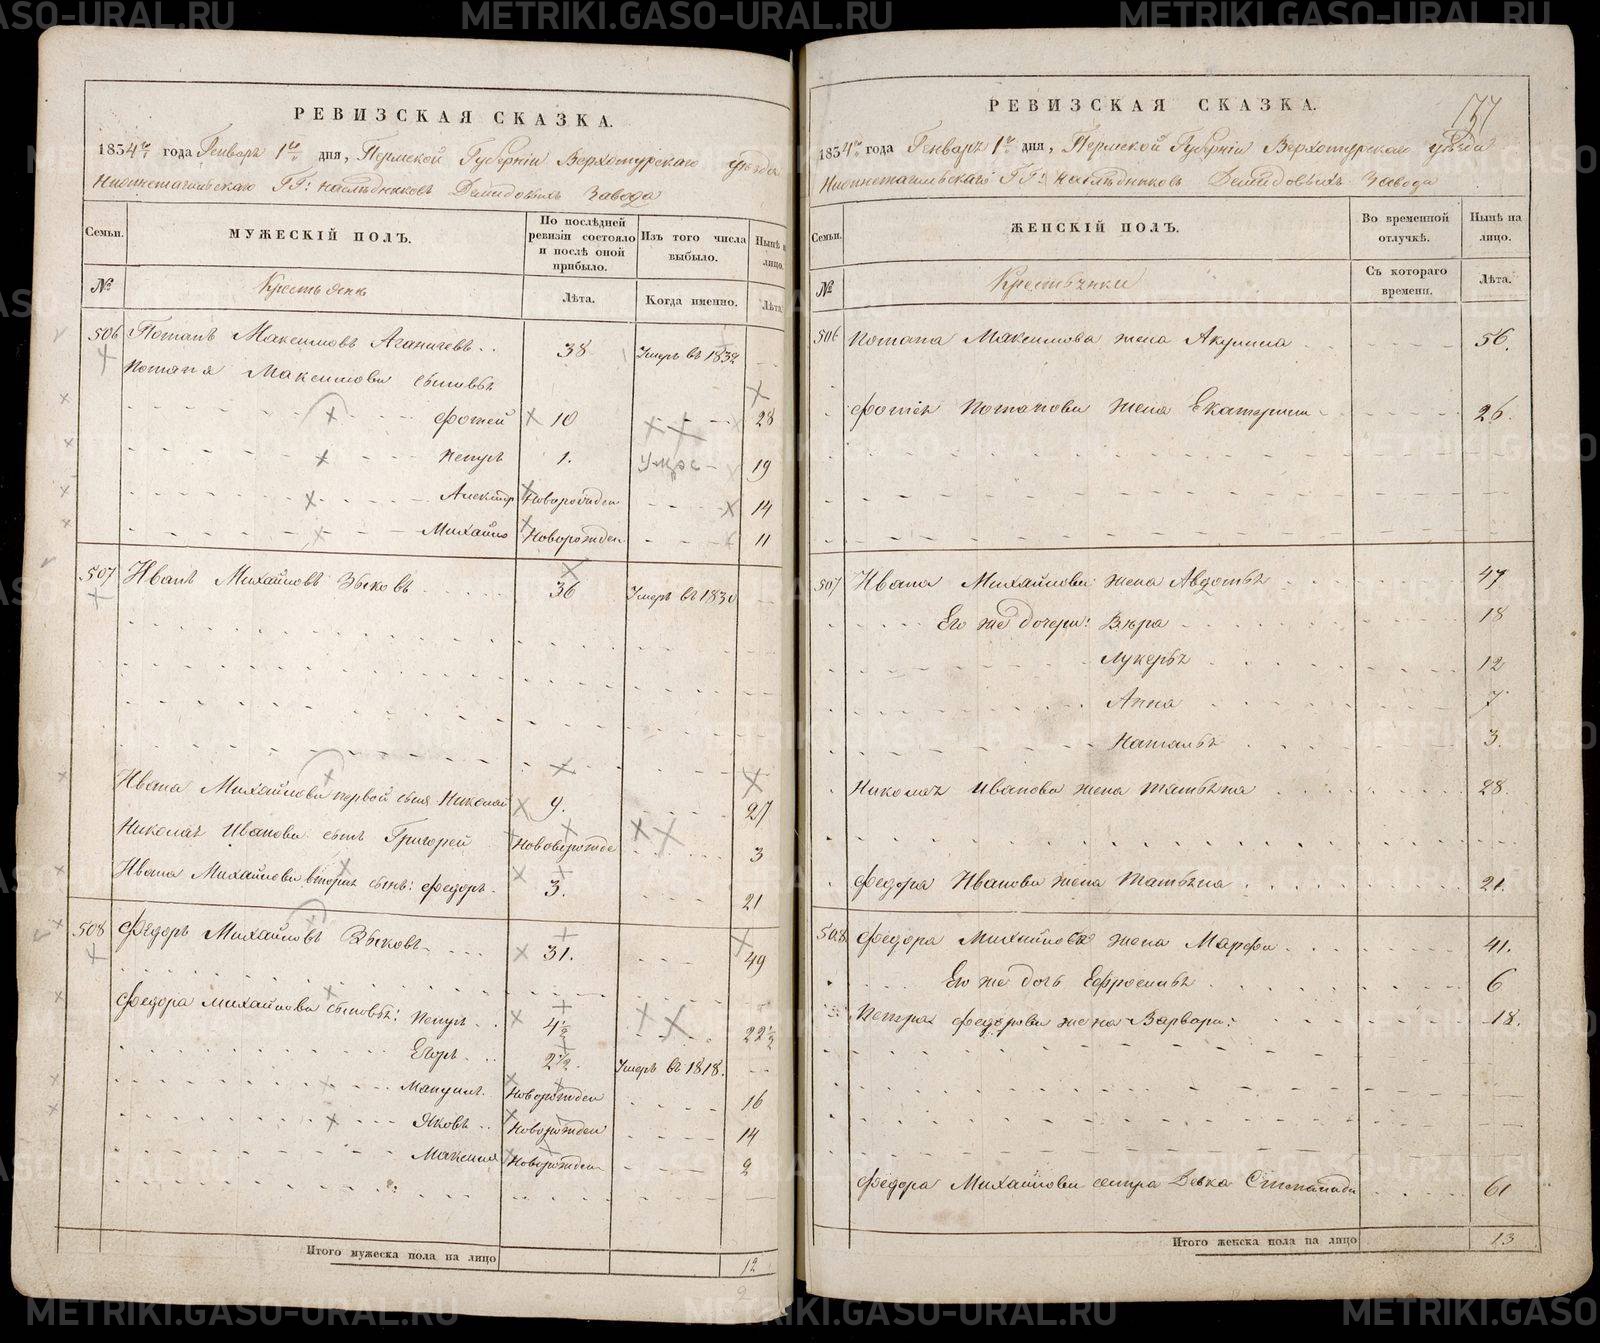 METRIKI.GASO-URAL.RU
РЕВИЗСКАЯ СКАЗКА.
1834го года Генваря 1го дня, Пермской Губернiи Верхотурскаго уѣзда
Нижнетагильскаго ГГ: наслѣдниковъ Демидовыхъ Завода
Семьи.
МУЖЕСКIЙ ПОЛЪ.
По послѣдней ревизiи состояло и послѣ оной прибыло.
Изъ того числа выбыло.
Нынѣ на лицо.
№
Крестьяне
Лѣта.
Когда именно.
Лѣта.
506 Потапъ Максимовъ 38 Умеръ въ 1832
Потапа Максимова сыновья
Фотей 10 28
Петръ 1. 19
Александр Новорожден 14
Михайло Новорожден 11
507 Иванъ Михайловъ Зыковъ 36 Умеръ въ 1830
Ивана Михайлова первой сынъ Николай 9. 27
Николая Иванова сынъ Григорей Новорожде 3
Ивана Михайлова вторый сынъ: Федоръ 3. 21
508 Федоръ Михайловъ Зыковъ 31. 49
Федора Михайлова сыновья: Петръ 4½ 22½
Егоръ 2½. Умеръ въ 1818.
Мануилъ Новорожден 16
Яковъ Новорожден 14
Максимъ Новорожден 2
Итого мужеска пола на лицо 12
2
177
РЕВИЗСКАЯ СКАЗКА.
1834го года Генваря 1го дня, Пермской Губернiи Верхотурскаго уѣзда
Нижнетагильскаго ГГ: наслѣдниковъ Демидовыхъ Завода
Семьи.
ЖЕНСКIЙ ПОЛЪ.
Во временной отлучкѣ.
Нынѣ на лицо.
№
Крестьянки
Съ котораго времени.
Лѣта.
506 Потапа Максимова жена Акулина 56.
Фотiя Потапова жена Екатерина 26.
507 Ивана Михайлова жена Авдотья 47
Его же дочери: Вѣра 18
Лукерья 12
Анна 7
Наталья 3.
Николая Иванова жена Татьяна 28.
Федора Иванова жена Татьяна 21.
508. Федора Михайлова жена Марфа 41.
Его же дочь Ефросинья 6
Петра Федорова жена Варвара: 18.
Федора Михайлова сестра Девка Степанида 61
Итого женска пола на лицо 13